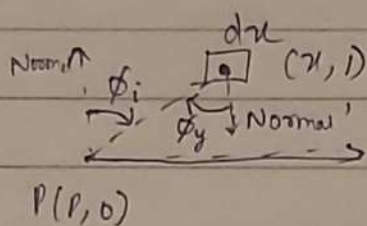 dx
Normal φi (x, 1)
φy Normal'
P(P, 0)